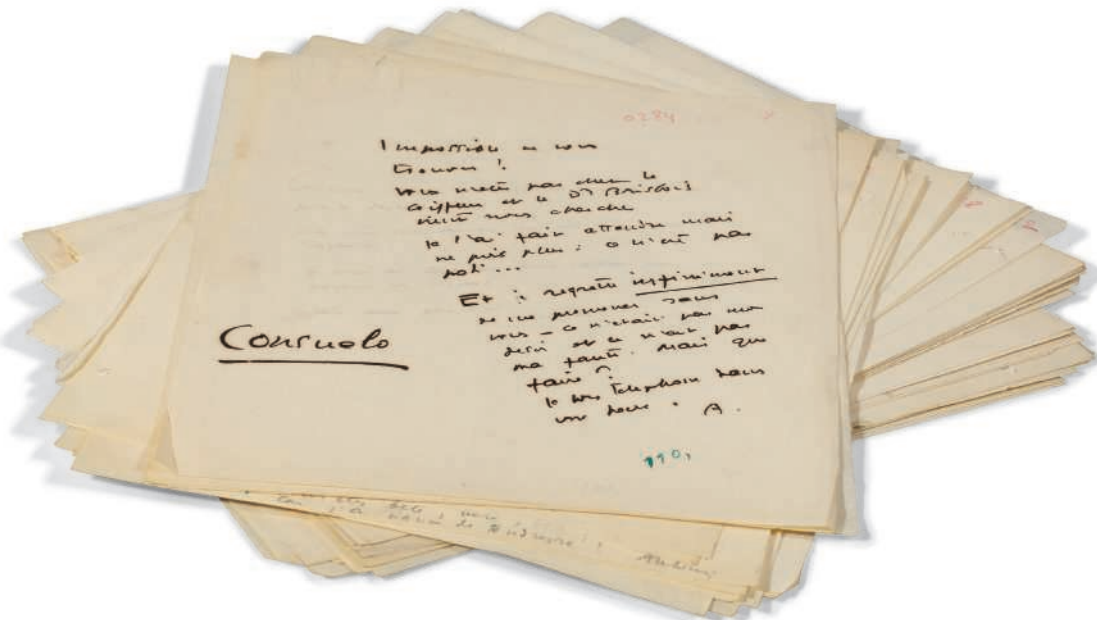 0284
Impossible de vous
trouver !
Vous n'etes pas chez le
coiffeur et le Dr Brissois
vient nous chercher
Je l'ai fait attendre mais
ne puis plus : ce n'est pas
poli ...
Et je regrette infiniment
de me promener sans
vous – ce n'était pas mon
desir et ce n'est pas
ma faute. Mais que
faire ?
Je vous telephone dans
une heure. A.
Consuelo
110,